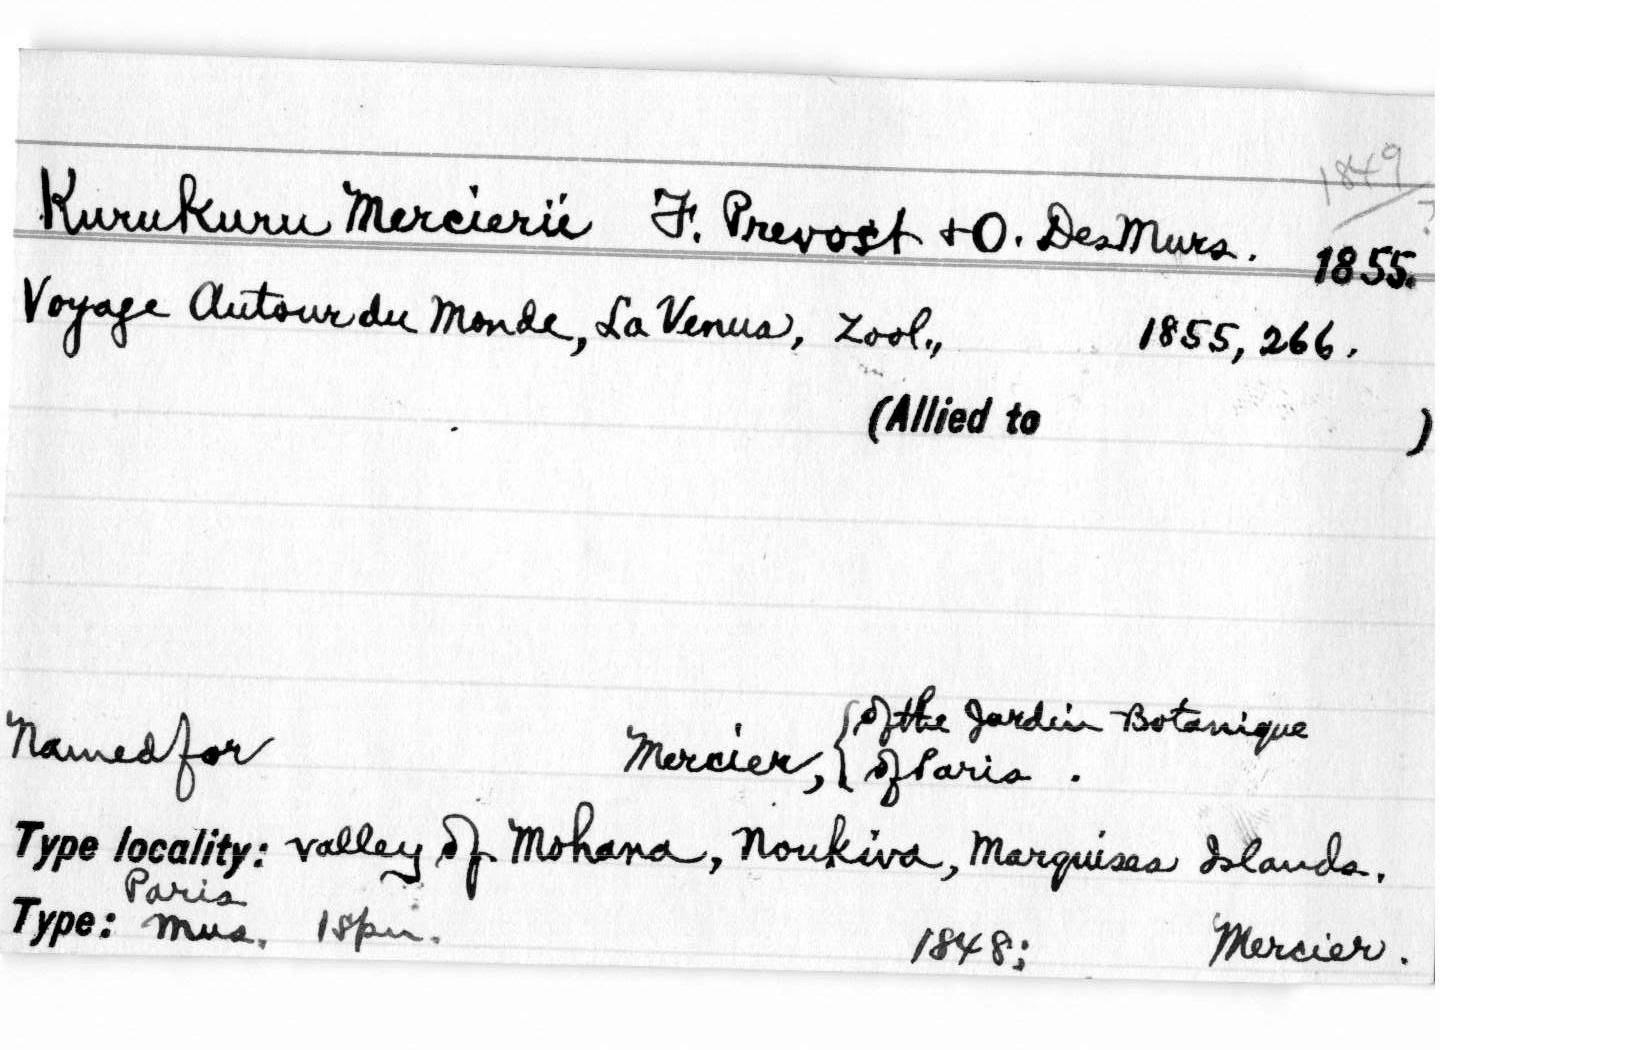 1849 ?
Kurukuru Mercierii F. Prevost + O. DesMurs. 1855.
Voyage Autour du Monde, La Venus, Zool., 1855, 266.
(Allied to )
Named for Mercier, { of the Jardin Botanique
of Paris .
Type locality: valley of Mohana, Noukiva, Marquises Islands.
Paris
Type: Mus. 1 spm. 1848; Mercier.